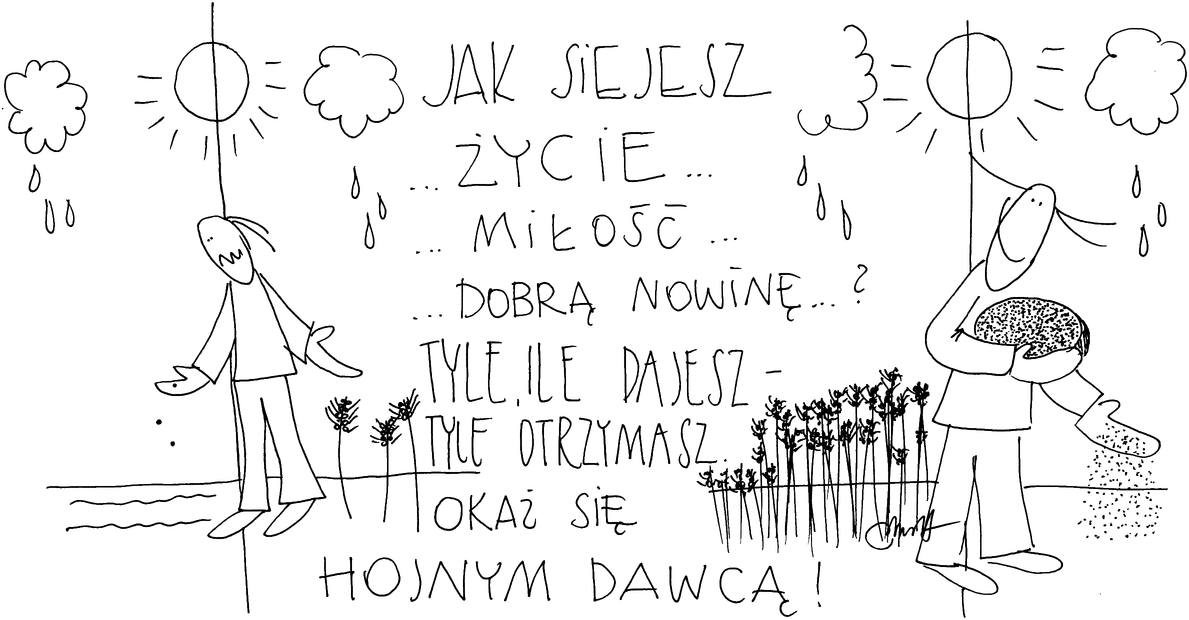 JAK SIEJESZ
... ŻYCIE ...
... MIŁOŚĆ ...
... DOBRĄ NOWINĘ ... ?
TYLE, ILE DAJESZ -
TYLE OTRZYMASZ.
OKAŻ SIĘ
HOJNYM DAWCĄ!